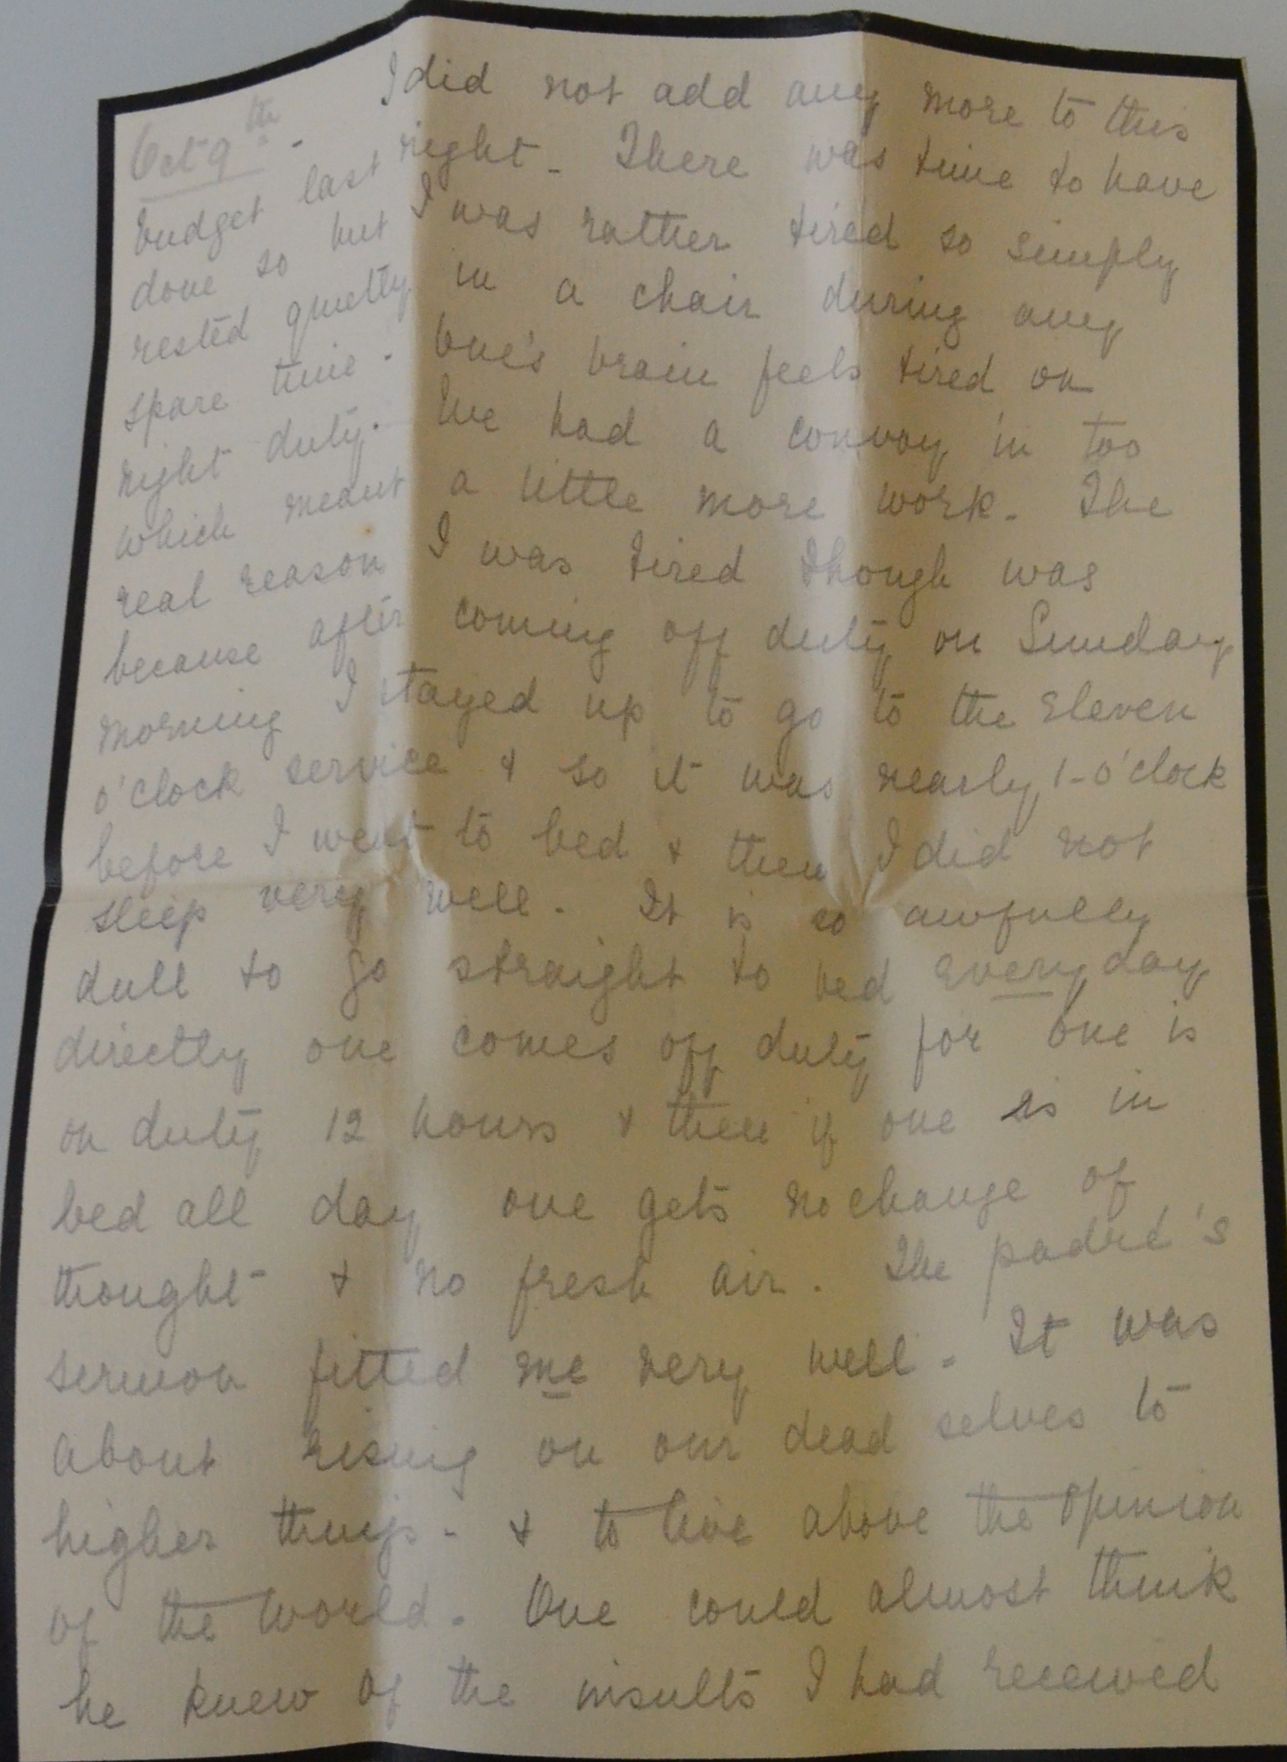 Oct 9th. I did not add any more to this
budget last night. There was time to have
done so but I was rather tired so simply
rested quietly in a chair during any
spare time. One's brain feels tired on
night duty. We had a convoy in too
which meant a little more work. The
real reason I was tired though was
because after coming off duty on Sunday
morning I stayed up to go to the eleven
o'clock service & so it was nearly 1-o'clock
before I went to bed & then I did not
sleep very well. It is so awfully
dull to go straight to bed every day
directly one comes off duty for one is
on duty 12 hours & then if one is in
bed all day one gets no change of
thought & no fresh air. The padre's
sermon fitted me very well. It was
about rising on our dead selves to
higher things - & to live above the opinion
of the world. One could almost think
he knew of the insults I had received